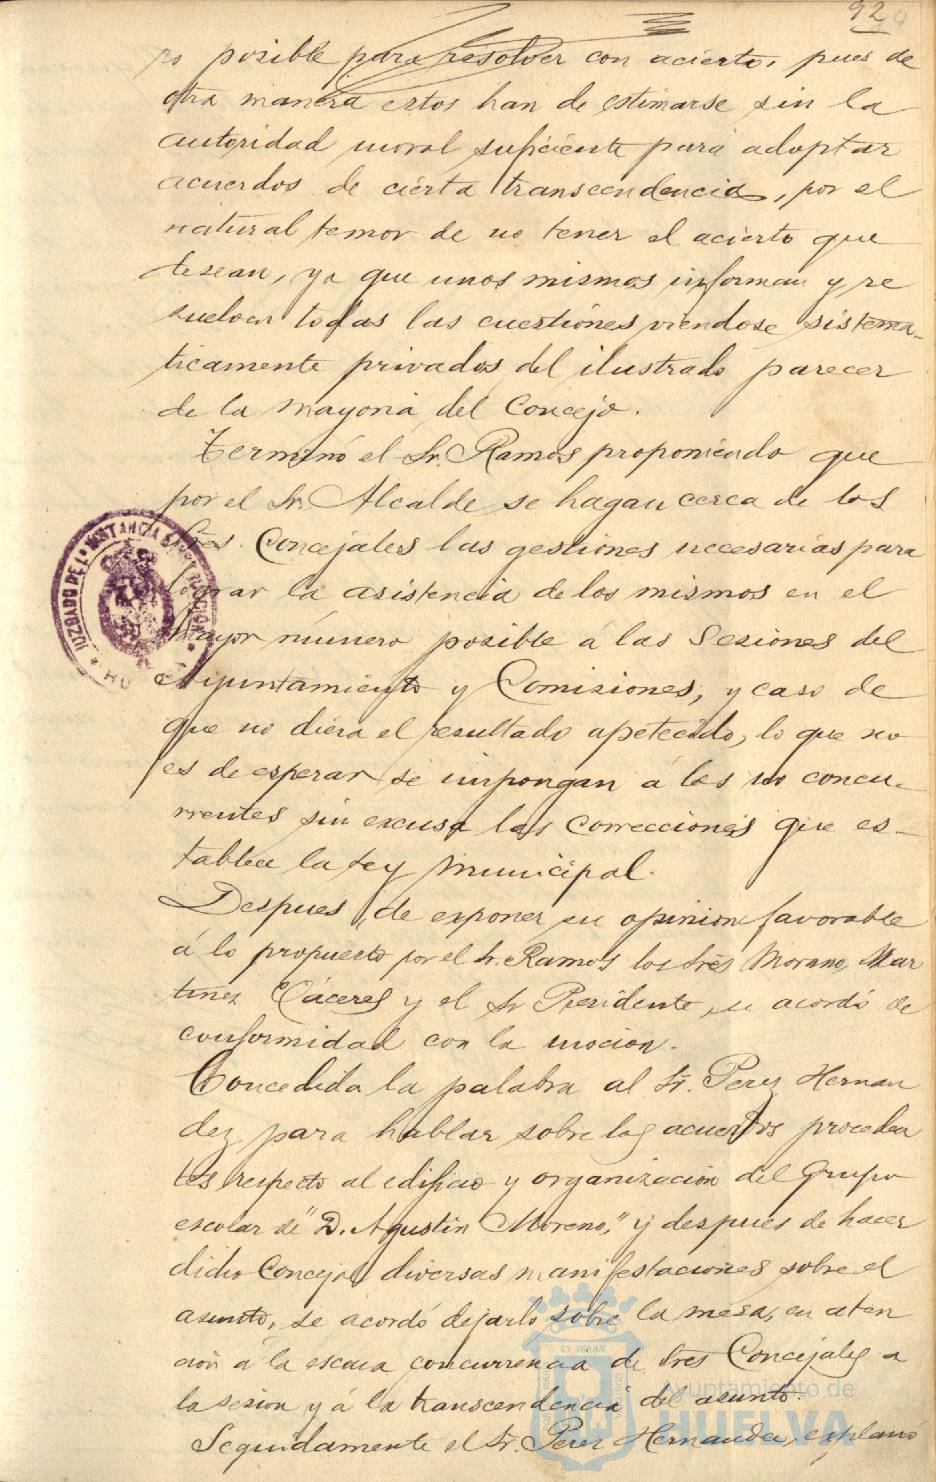 92
ro posible para resolver con acierto, pues de
otra manera estos han de estimarse sin la
autoridad moral suficiente para adoptar
acuerdos de cierta transcendencia, por el
natural temor de no tener el acierto que
desean, ya que unos mismos informan y re
suelven todas las cuestiones viendose sistema-
ticamente privados del ilustrado parecer
de la mayoria del Concejo.
Terminó el Sr. Ramos proponiendo que
por el Sr. Alcalde se hagan cerca de los
Sres. Concejales las gestiones necesarias para
lograr la asistencia de los mismos en el
mayor número posible á las Sesiones del
Ayuntamiento y Comisiones, y caso de
que no diera el resultado apetecido, lo que no
es de esperar se impongan á los no concu-
rrentes sin excusa las correcciones que es-
tablece la Ley Municipal.
Despues de exponer su opinion favorable
á lo propuesto por el Sr. Ramos los Sres Morano, Mar
tinez Cáceres y el Sr Presidente, se acordó de
conformidad con la mocion.
Concedida la palabra al Sr. Perez Hernan
dez para hablar sobre los acuerdos proceden
tes respecto al edificio y organización del Grupo
escolar de "D. Agustin Moreno," y despues de hacer
dicho Concejal diversas manifestaciones sobre el
asunto, se acordó dejarlo sobre la mesa, en aten
ción á la escasa concurrencia de Sres Concejales a
la sesion y á la transcendencia del asunto.
Seguidamente el Sr. Perez Hernandez, explanó
JUZGADO DE 1ª INSTANCIA E INSTRUCCION
HUELVA
Ayuntamiento de
HUELVA